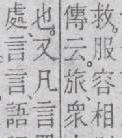 救。服容相
傳云。旅、衆
也。又凡言
處、言言語